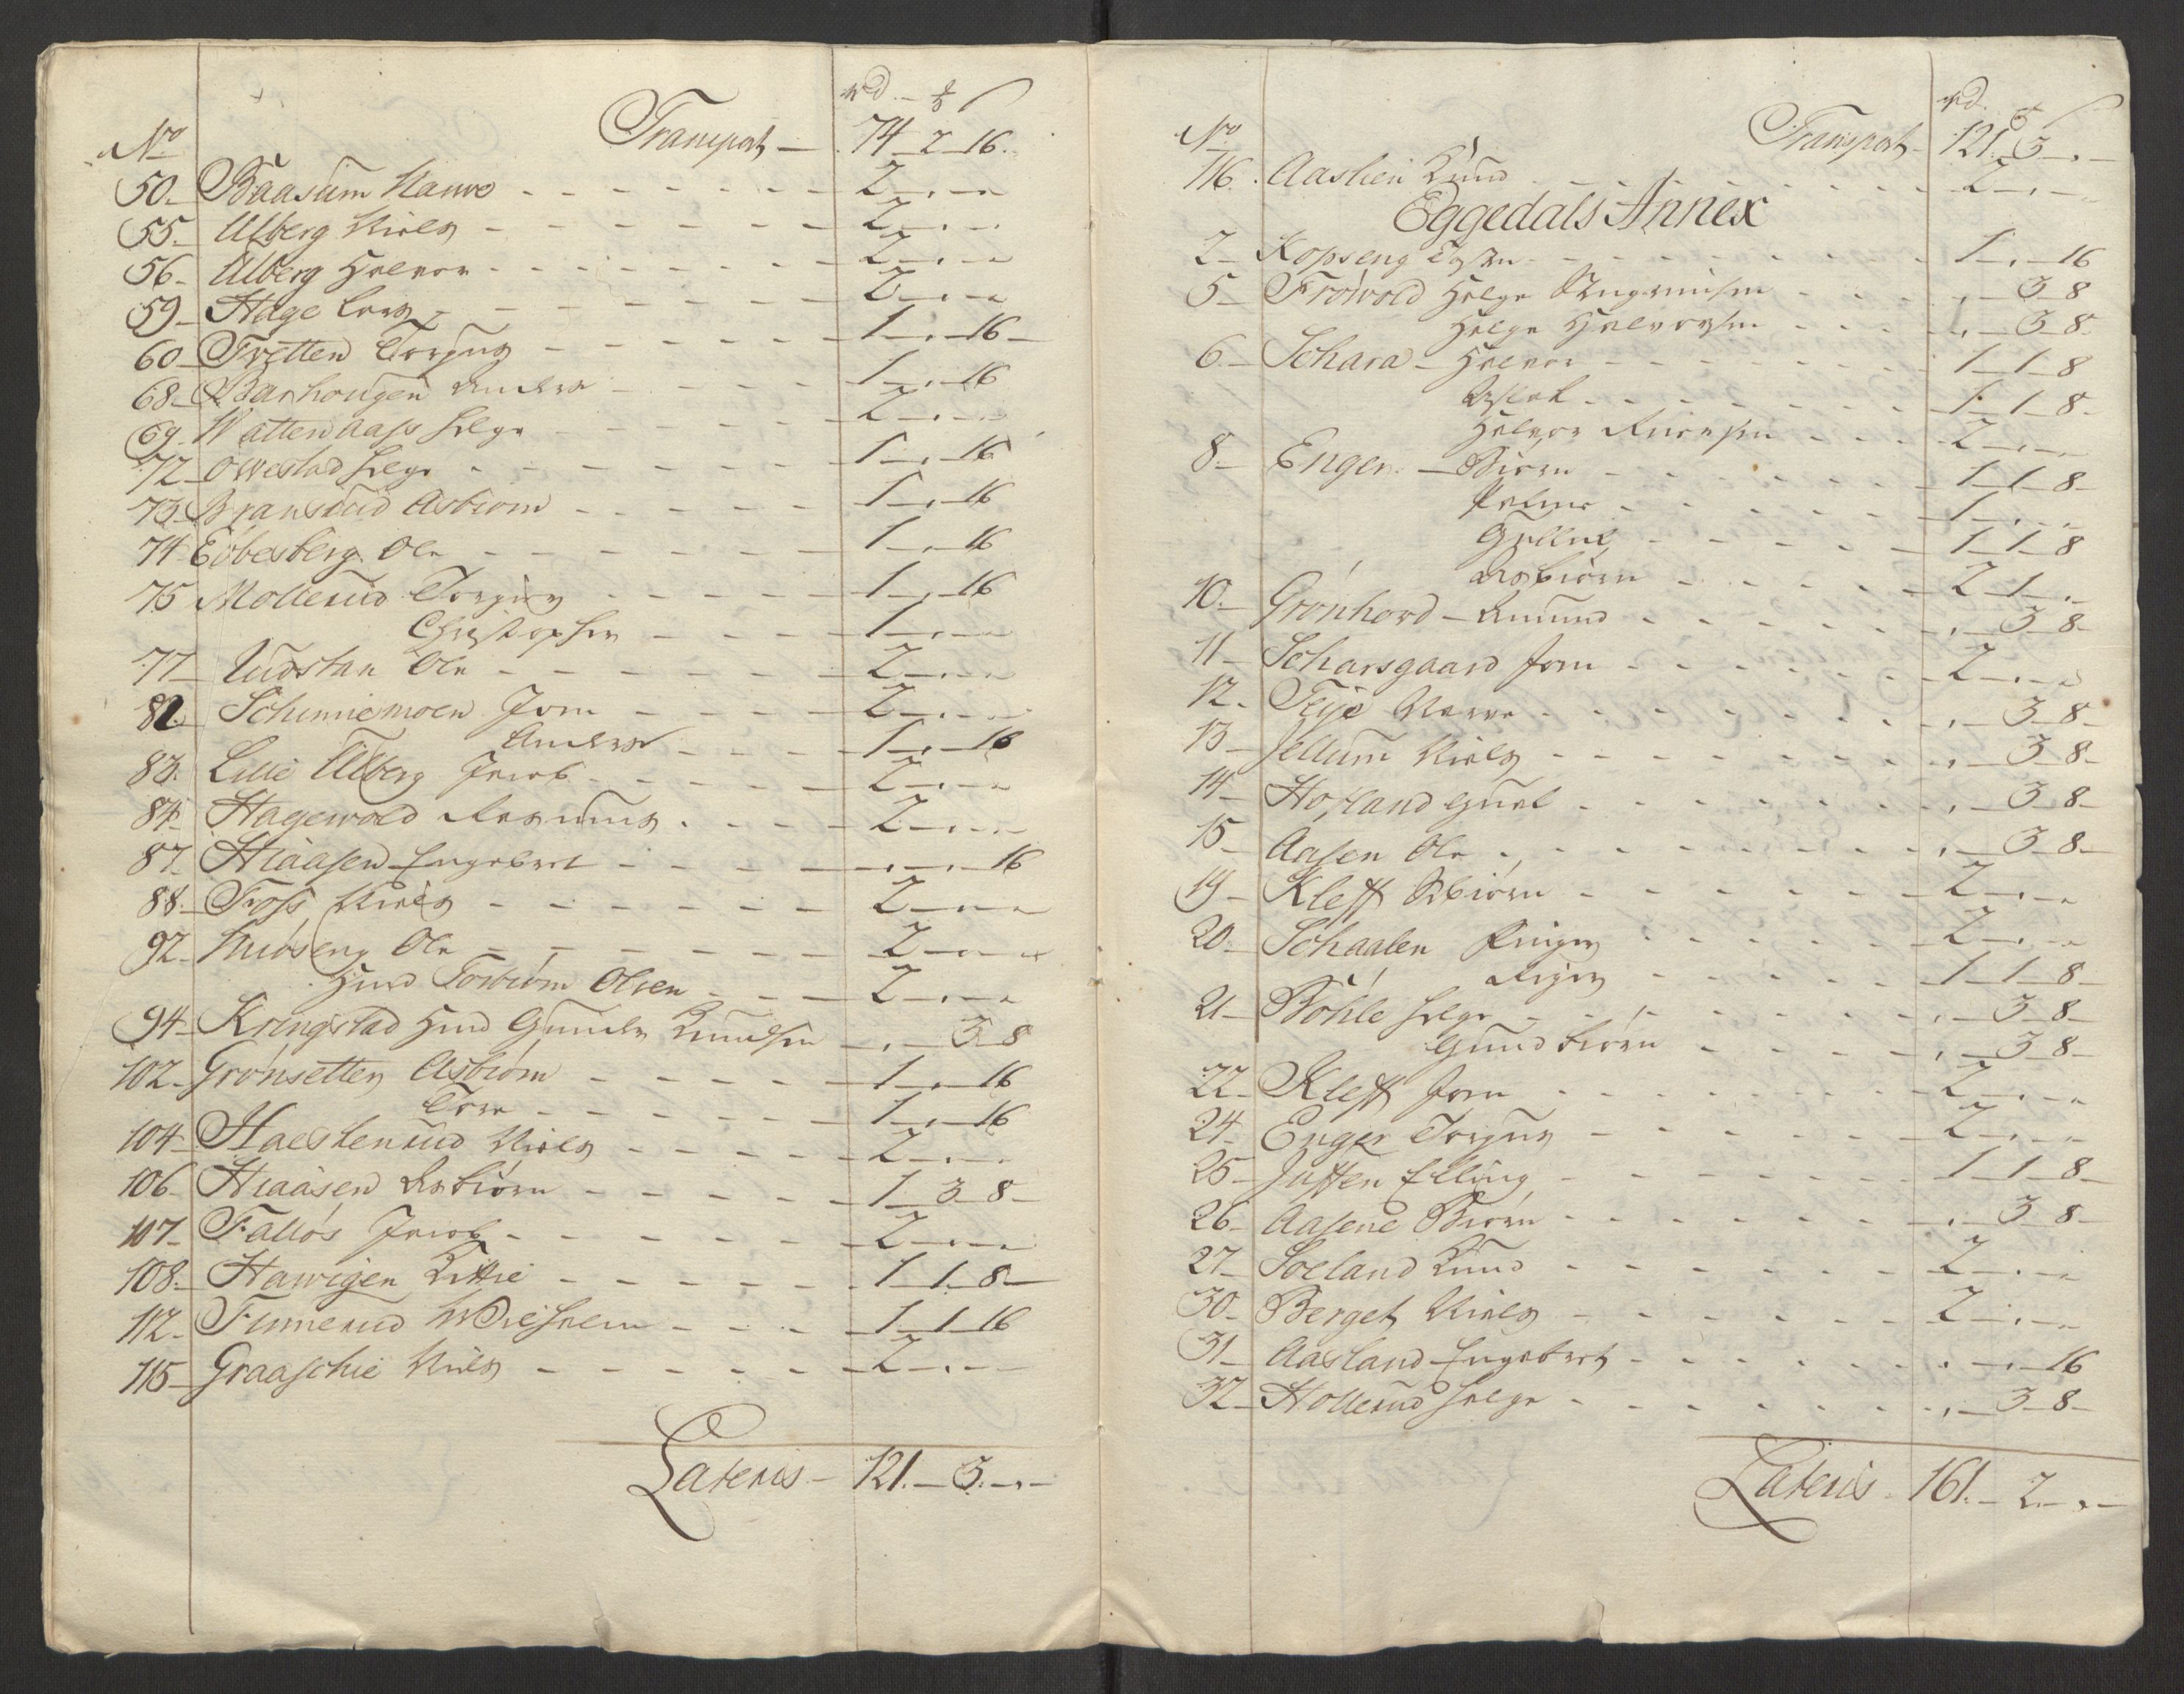 rd. ß
No Transport — 74 — 2 — 16.
50. Baasum Narve - - - 2 — . — .
55. Ulberg Niels - - - 2 — . — .
56. Ulberg Halvor - - - 2 — . — .
59 Hage Lars - - - 2 — . — .
60 Tvetten Torgus - - - 1 — . — 16
68. Barhougen Anders - - - 1 — . — 16
69. Wattenaass Helge - - - 2 — . — .
72 Owestad Helge - - - 1 — . — 16
73. Bransrud Asbiørn - - - 1 — . — 16
74 Eobesberg Ole - - - 1 — . — 16
75 Mollerud Torgus - - - 1 — . — 16
Christopher - - - 1 — . — .
77 Rudstan Ole - - - 2 — . — .
82. Schinniemoen Jorn - - - 2 — . — .
Anders - - - 1 — . — 16
83. Lille Ulberg Jacob - - - 2 — . — .
84. Hagewold Rasmus - - - 2 — . — .
87. Hraasen Engebret - - - . — . — 16
88. Foss Niels - - - 2 — . — .
92. Ole - - - 2 — . — .
Hms Torbiørn Olsen - - - 2 — . — .
94 Kringstad Hms Gunder Knudsen — . — 3 — 8
102. Grønsetten Asbiørn - - - 1 — . — 16
Tore - - - 1 — . — 16
104 Haeslerud Niels - - - 2 — . — .
106. Hraasen Asbiørn - - - 1 — 3 — 8
107. Falløs Jacob - - - 2 — . — .
108. Hawigen Kittil - - - 1 — 1 — 8
112. Finnerud - - - 1 — 1 — 16
115 Graaschie Niels - - - 2 — . — .
Lateris — 121. — 3. — . —
rd. ß
No Transport — 121. 3 — . —
116. Aaslien Knud - - - 2 — . — .
Eggedals Annex
2 Kopseng - - - 1 — . — 16
5 Frøwold Helge - - - . — 3 — 8
Helge Halvorsen - - - . — 3 — 8
6. Schara — Halvor - - - 1 — 1 — 8
Aslak - - - 1 — 1 — 8
Halvor - - - 2 — . — .
8 Enger — Biørn - - - 1 — 1 — 8
- - - 1 — . — .
Gullik - - - 1 — 1 — 8
Asbiørn - - - 2 — 1 — .
10. Grønhovd — Amund - - - . — 3 — 8
11 Scharsgaard Jorn - - - 2 — . — .
12. Teije Narve - - - . — 3 — 8
13 Jellum Niels - - - . — 3 — 8
14 Hofland - - - . — 3 — 8
15 Aasen Ole - - - . — 3 — 8
19 Kleff Asbiørn - - - 2 — . — .
20. Schaalen - - - 2 — . — .
- - - 1 — 1 — 8
21 Bøhle Helge - - - . — 3 — 8
Gundbiørn - - - . — 3 — 8
22 Kleff Jorn - - - 2 — . — .
24 Enger Torgus - - - 2 — . — .
25 Juffen Elling - - - 1 — 1 — 8
26 Aasene Biørn - - - . — 3 — 8
27 Soeland Knud - - - 2 — . — .
30 Berget Niels - - - 2 — . — .
31 Aasland Engebret - - - . — . — 16
32 Hollerud Helge - - - . — 3 — 8
Lateris — 161. — 2. — . —